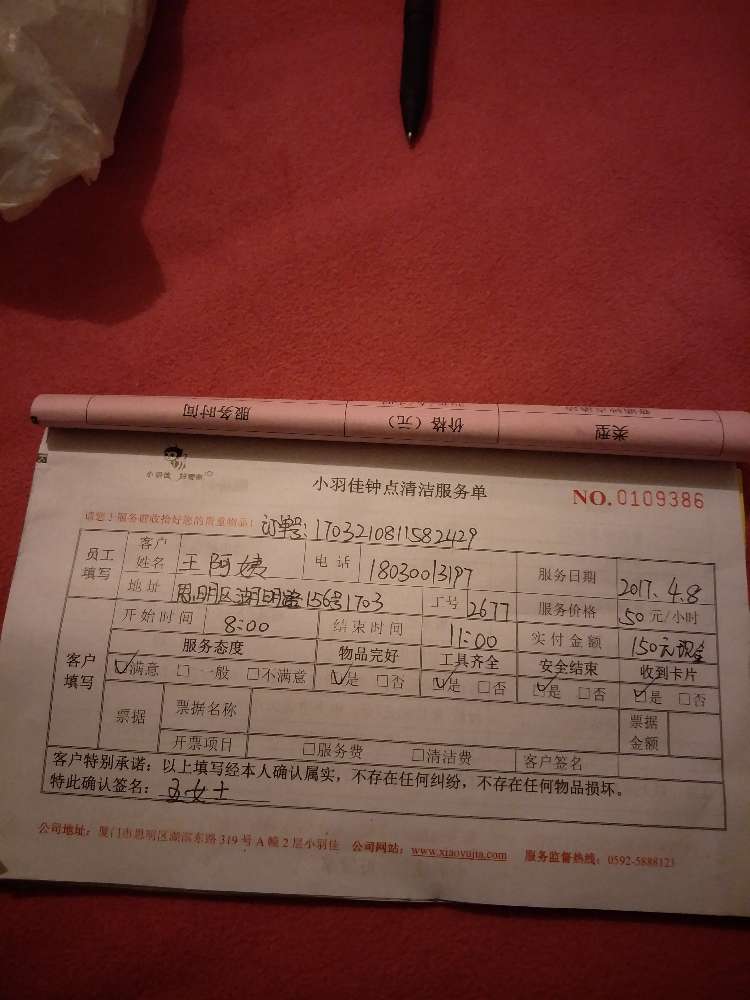 服务时间 价格（元） 类型
小羽佳钟点清洁服务单 NO.0109386
请您于服务前收拾好您的贵重物品！ 订单号：1703210811582429
员工填写 客户姓名 王阿姨 电话 18030013197 服务日期 2017.4.8
地址 思明区湖明路156号1703 工号 2677 服务价格 50元/小时
客户填写 开始时间 8:00 结束时间 11:00 实付金额 150元现金
服务态度 物品完好 工具齐全 安全结束 收到卡片
☑满意 □一般 □不满意 ☑是 □否 ☑是 □否 ☑是 □否 ☑是 □否
票据 票据名称 票据金额
开票项目 □服务费 □清洁费 客户签名
客户特别承诺：以上填写经本人确认属实，不存在任何纠纷，不存在任何物品损坏。
特此确认签名：王女士
公司地址：厦门市思明区湖滨东路319号A幢2层小羽佳 公司网站：www.xiaoyujia.com 服务监督热线：0592-5888123